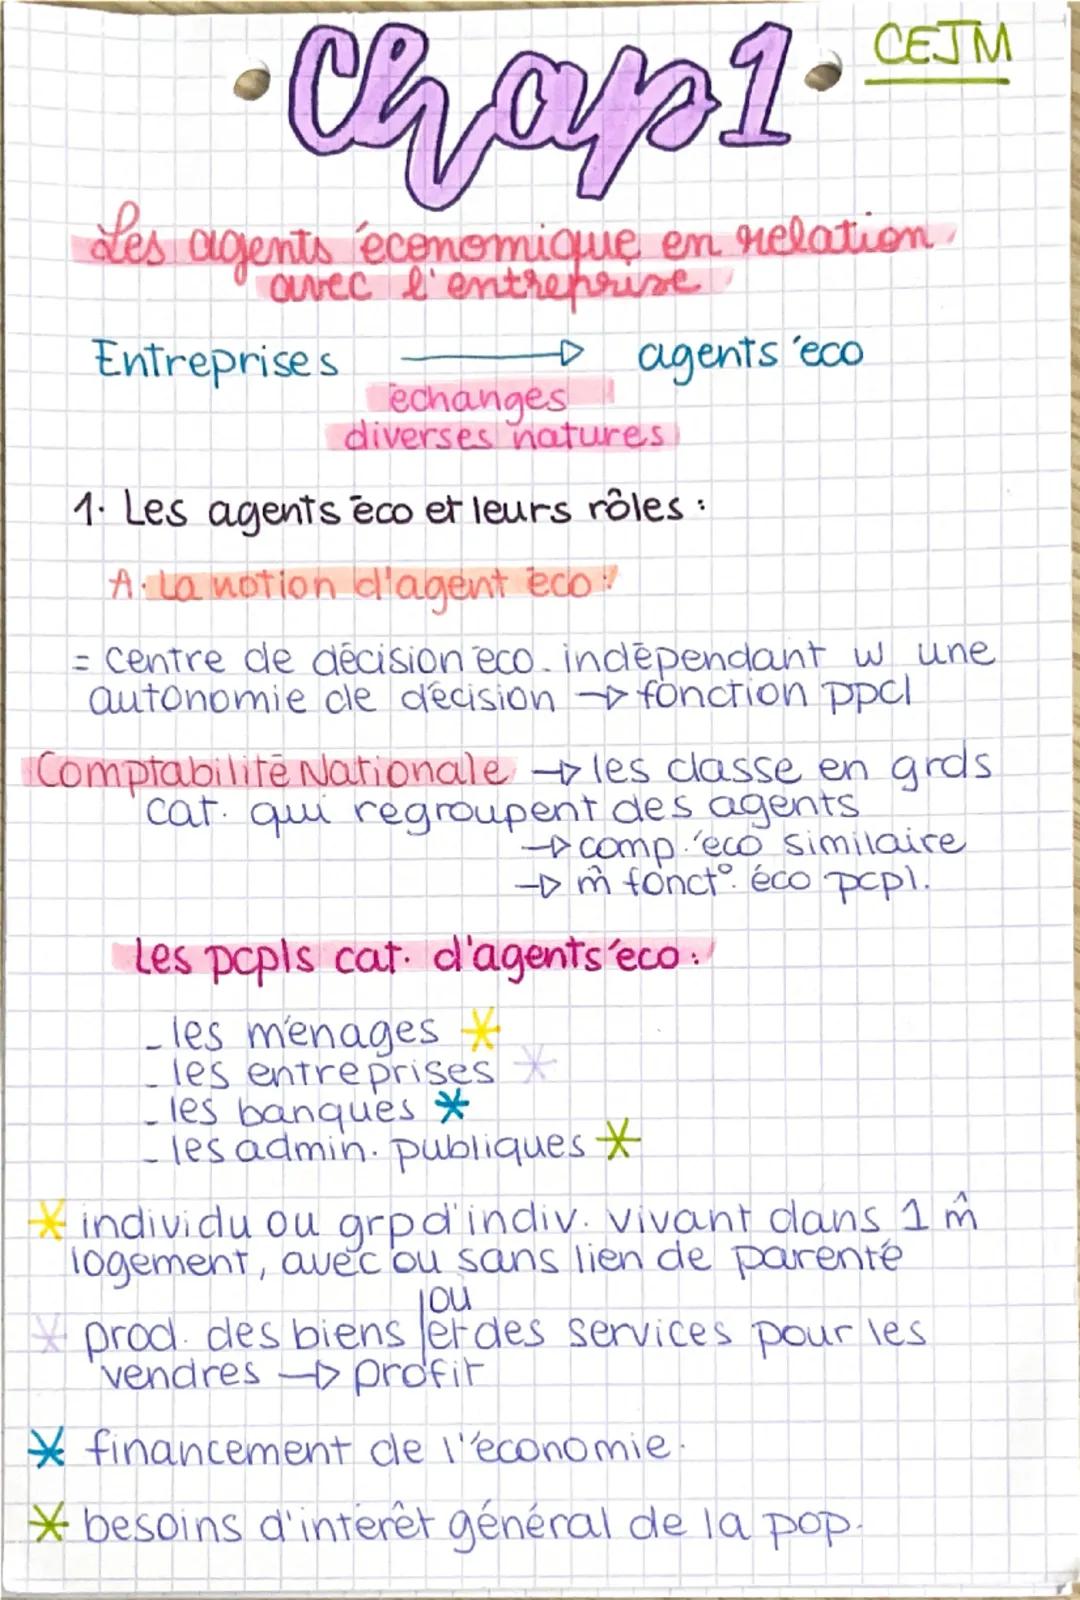 Chap 1
CEJM
Les agents économique en relation
avec l'entreprise
Entreprises → agents éco
échanges
diverses natures
1. Les agents éco et leurs rôles :
A. La notion d'agent éco :
= centre de décision éco. indépendant w une
autonomie de décision → fonction ppcl
Comptabilité Nationale → les classe en grds
cat. qui regroupent des agents
→ comp. éco similaire
→ m̂ fonct°. éco pcpl.
Les pcpls cat. d'agents éco :
- les ménages *
- les entreprises *
- les banques *
- les admin. publiques *
* individu ou grp d'indiv. vivant dans 1 m̂
logement, avec ou sans lien de parenté
ou
* prod. des biens et des services pour les
vendres → profit
* financement de l'économie.
* besoins d'intérêt général de la pop.